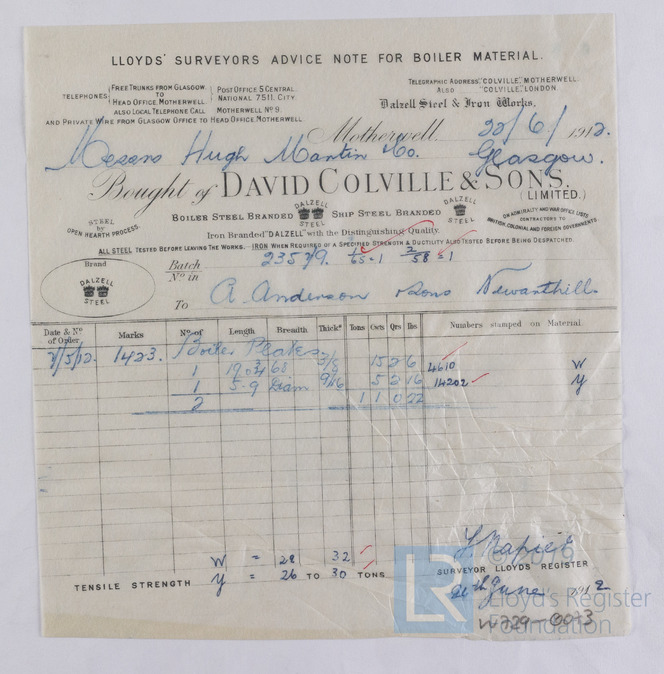 LLOYDS' SURVEYORS ADVICE NOTE FOR BOILER MATERIAL.
TELEPHONES FREE TRUNKS FROM GLASGOW TO HEAD OFFICE MOTHERWELL. POST OFFICE 5 CENTRAL. NATIONAL 7511, CITY.
ALSO LOCAL TELEPHONE CALL MOTHERWELL Nº 9.
AND PRIVATE WIRE FROM GLASGOW OFFICE TO HEAD OFFICE MOTHERWELL.
TELEGRAPHIC ADDRESS "COLVILLE", MOTHERWELL.
ALSO "COLVILLE", LONDON
Dalzell Steel & Iron Works,
Motherwell 22/6/1912.
Messrs Hugh Martin & Co. Glasgow.
Bought of DAVID COLVILLE & SONS.
(LIMITED.)
BOILER STEEL BRANDED DALZELL STEEL SHIP STEEL BRANDED DALZELL STEEL
STEEL by OPEN HEARTH PROCESS
ON ADMIRALTY AND WAR OFFICE LISTS
CONTRACTORS TO
BRITISH, COLONIAL AND FOREIGN GOVERNMENTS
Iron Branded "DALZELL" with the Distinguishing Quality.
ALL STEEL TESTED BEFORE LEAVING THE WORKS. - IRON WHEN REQUIRED OF A SPECIFIED STRENGTH & DUCTILITY ALSO TESTED BEFORE BEING DESPATCHED.
Brand
DALZELL STEEL
Batch Nº in
To A. Anderson & Sons Newarthill
Date & Nº of Order. Marks Nº of Length Breadth Thickˢ Tons Cwts Qrs lbs Numbers stamped on Material
2/5/12. 1423. Boiler Plates
1 3/8 15 2 6 4610 W
1 5.9 Diam 9/16 5 2 16 14202 Y
2 1 1 0 22
W = 28 32
TENSILE STRENGTH Y = 26 TO 30 TONS
J. Napier
SURVEYOR LLOYDS REGISTER
June 1912
W729-0073
© 2019
LR Lloyd's Register
Foundation